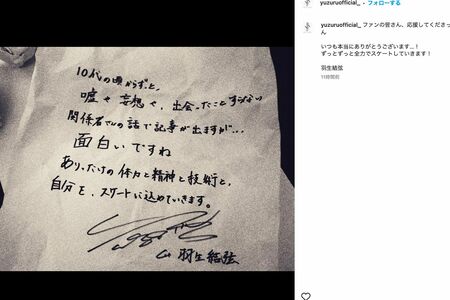 10代の頃からずっと、
嘘や妄想や、出会ったことすらない
関係者さんの話で記事が出ますが…
面白いですね
ありったけの体力と精神と技術と、
自分を、スケートに込めていきます。
羽生結弦
yuzuruofficial_ • フォローする
yuzuruofficial_ ファンの皆さん、応援してくださっ
ん
いつも本当にありがとうございます…！
ずっとずっと全力でスケートしていきます！
羽生結弦
11時間前